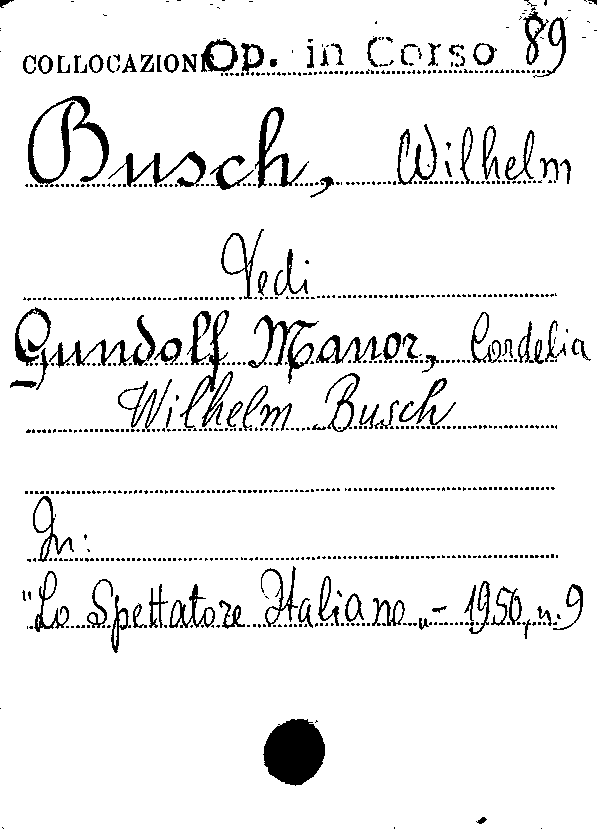 COLLOCAZIONE Op. in Corso 89
Busch, Wilhelm
Vedi
Gundolf Manor, Cordelia
Wilhelm Busch
In:
"Lo Spettatore Italiano„ - 1950, n. 9